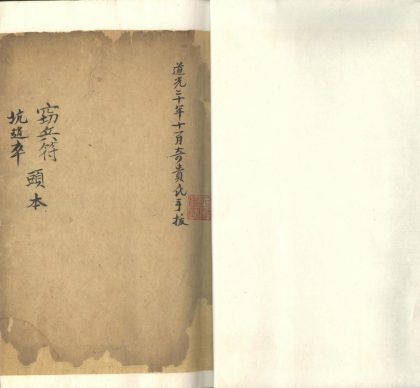 道光二十年十一月奇貴氏手
窃兵符 頭本
坑趙卒